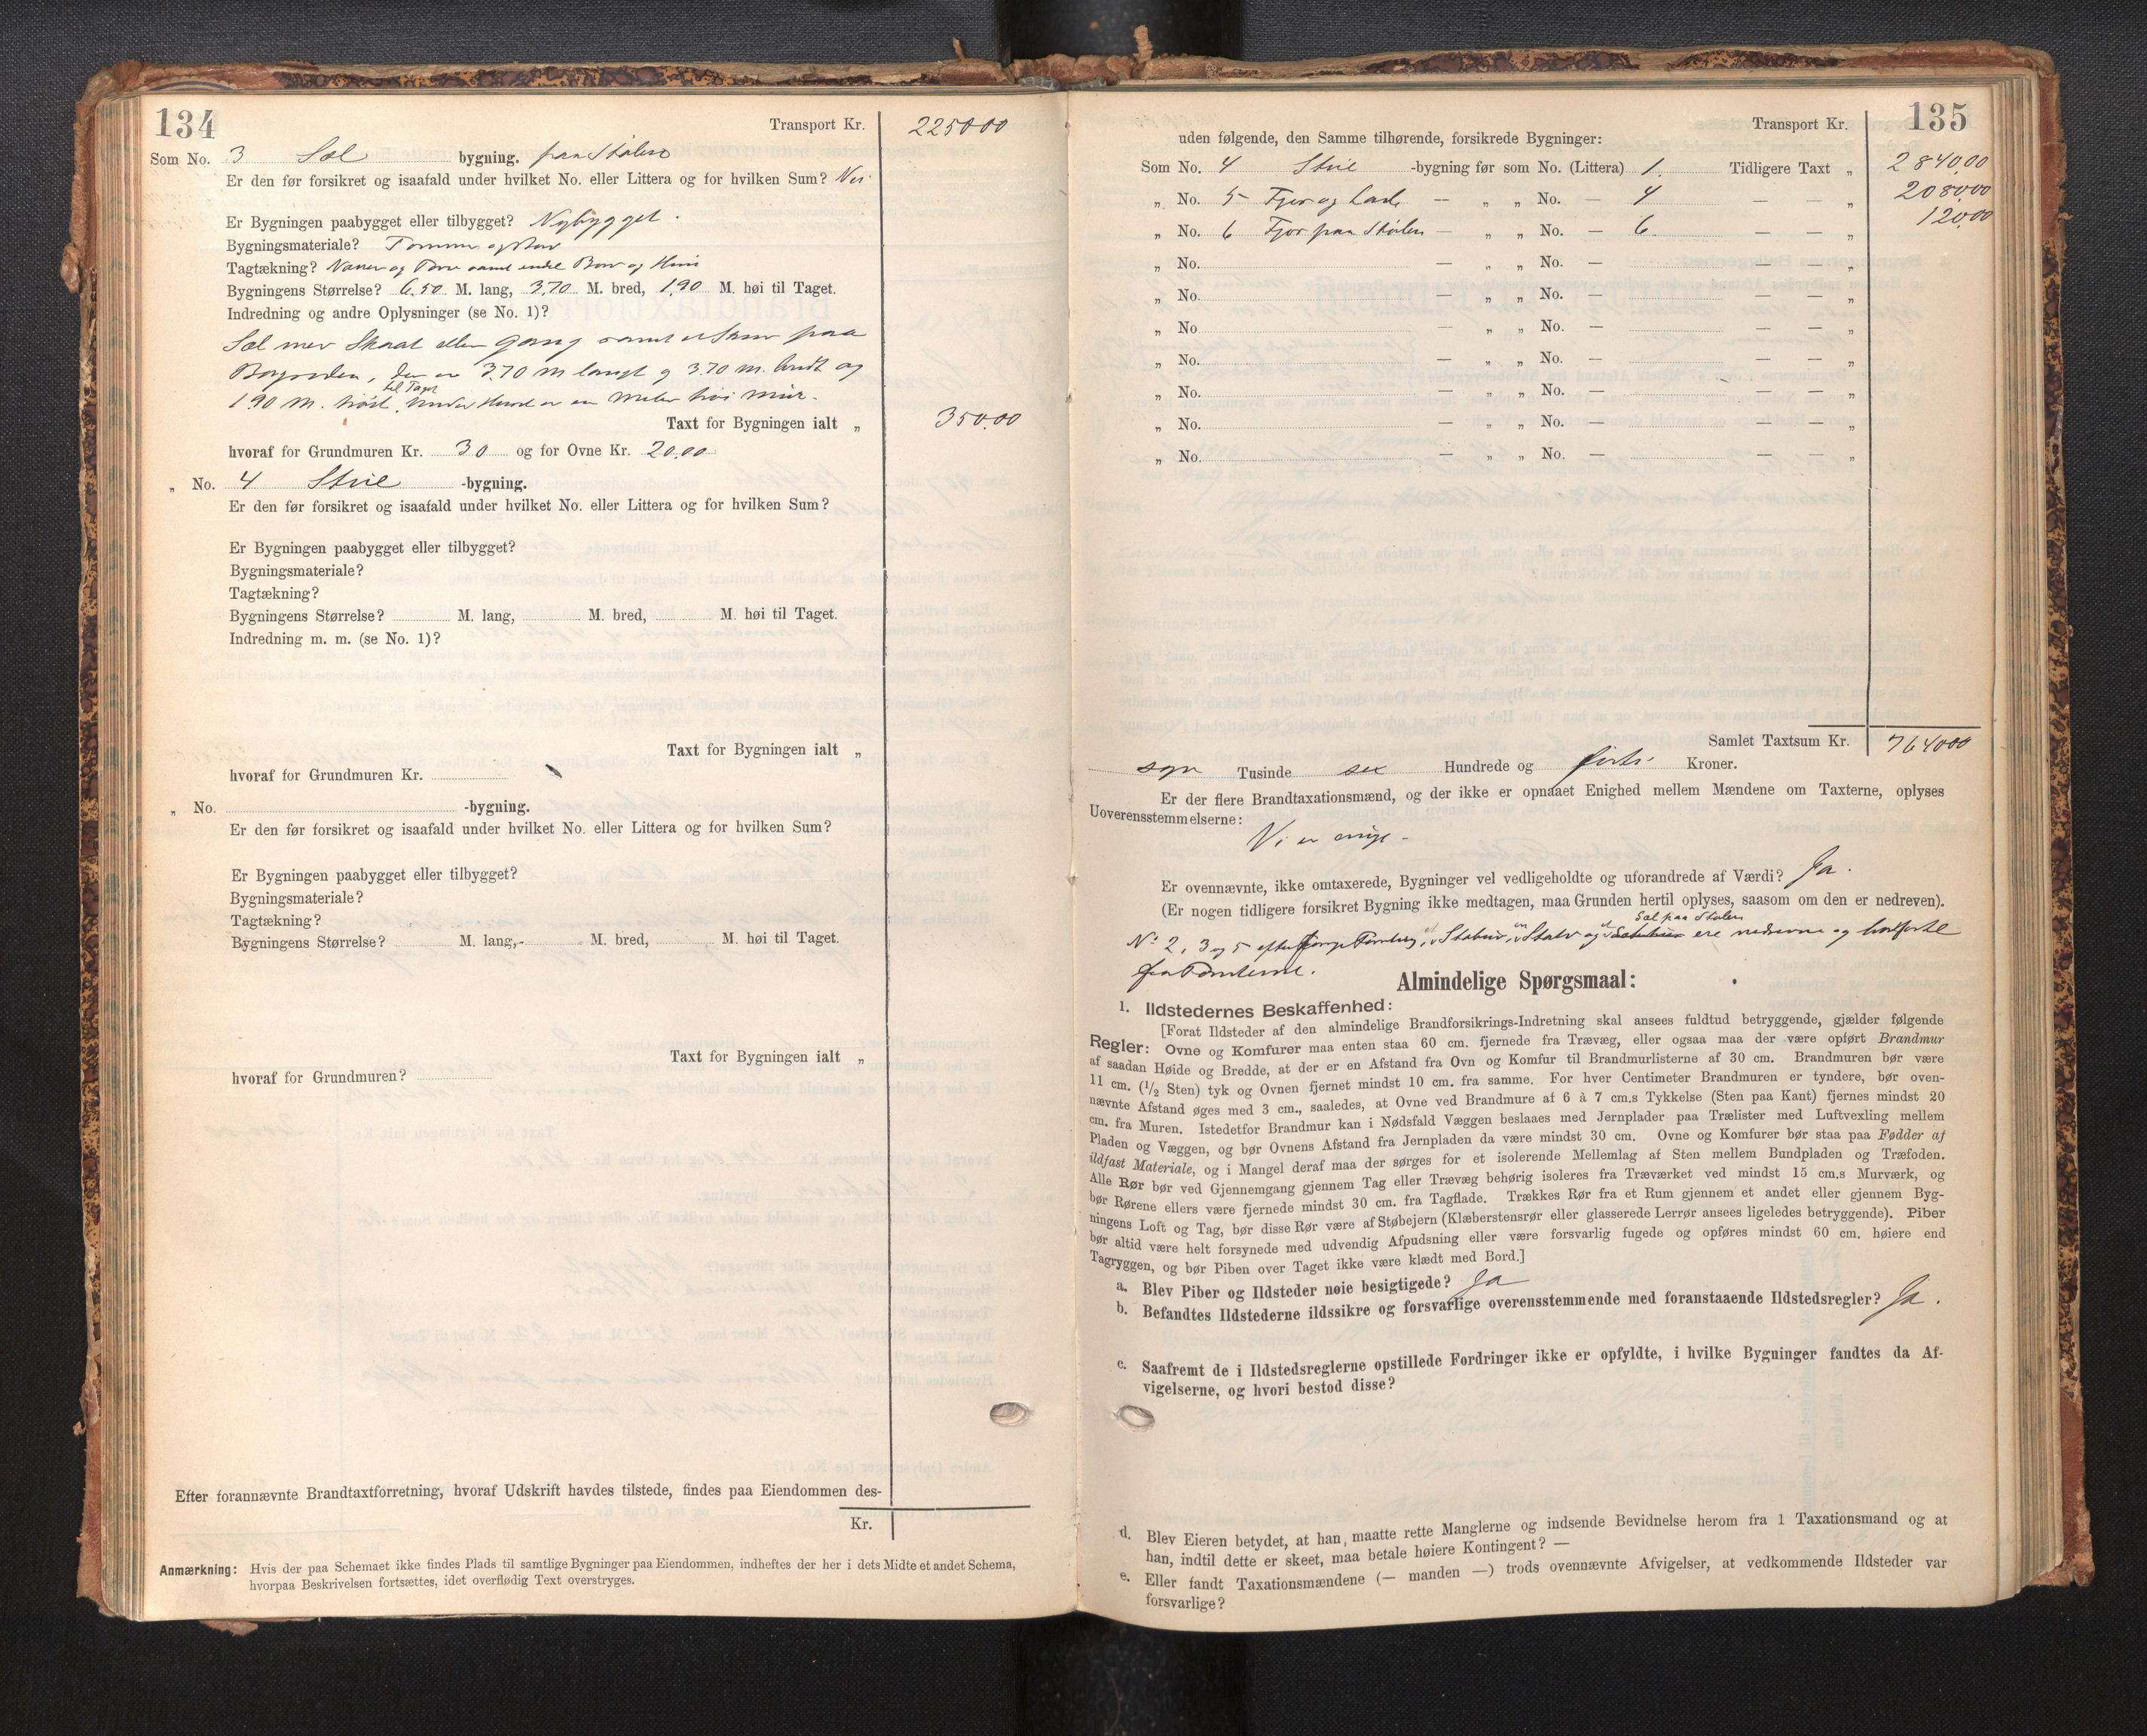 134
Transport Kr. 2250.00
Som No. 3 Sæl bygning. paa Stølen
Er den før forsikret og isaafald under hvilket No. eller Littera og for hvilken Sum? Nei
Er Bygningen paabygget eller tilbygget? Nybygget.
Bygningsmateriale? Tømmer og
Tagtækning? Næver og Torv samt endel Bor og
Bygningens Størrelse? 6,50 M. lang, 3,70 M. bred, 1,90 M. høi til Taget.
Indredning og andre Oplysninger (se No. 1)?
Sæl med Skaat eller gang samt et paa
den er 3.70 m langt og 3.70 m. bredt og
1.90 M. høit til Taget, under er en meter høi mur.
Taxt for Bygningen ialt „ 350.00
hvoraf for Grundmuren Kr. 30 og for Ovne Kr. 20.00
„ No. 4 Stue -bygning.
Er den før forsikret og isaafald under hvilket No. eller Littera og for hvilken Sum?
Er Bygningen paabygget eller tilbygget?
Bygningsmateriale?
Tagtækning?
Bygningens Størrelse? M. lang, M. bred, M. høi til Taget.
Indredning m. m. (se No. 1)?
Taxt for Bygningen ialt „
hvoraf for Grundmuren Kr.
„ No. -bygning.
Er den før forsikret og isaafald under hvilket No. eller Littera og for hvilken Sum?
Er Bygningen paabygget eller tilbygget?
Bygningsmateriale?
Tagtækning?
Bygningens Størrelse? M. lang, M. bred, M. høi til Taget.
Taxt for Bygningen ialt „
hvoraf for Grundmuren?
Efter forannævnte Brandtaxtforretning, hvoraf Udskrift havdes tilstede, findes paa Eiendommen des-
Kr.
Anmærkning: Hvis der paa Schemaet ikke findes Plads til samtlige Bygninger paa Eiendommen, indheftes der her i dets Midte et andet Schema,
hvorpaa Beskrivelsen fortsættes, idet overflødig Text overstryges.
135
Transport Kr.
uden følgende, den Samme tilhørende, forsikrede Bygninger:
Som No. 4 Stue -bygning før som No. (Littera) 1. Tidligere Taxt „ 2840,00
„ No. 5 Fjør og Lade — „ „ No. — 4 — — „ 2080,00
„ No. 6 Fjør paa Stølen — „ „ No. — 6. — — „ 120,00
„ No. — „ „ No. — — — „
„ No. — „ „ No. — — — „
„ No — „ „ No. — — — „
„ No. — „ „ No. — — — „
„ No. — „ „ No. — — — „
„ No. — „ „ No. — — — „
„ No. — „ „ No. — — — „
Samlet Taxtsum Kr. 7640.00
syv Tusinde sex Hundrede og firti Kroner.
Er der flere Brandtaxationsmænd, og der ikke er opnaaet Enighed mellem Mændene om Taxterne, oplyses
Uoverensstemmelserne:
Vi er enige -
Er ovennævnte, ikke omtaxerede, Bygninger vel vedligeholdte og uforandrede af Værdi? Ja.
(Er nogen tidligere forsikret Bygning ikke medtagen, maa Grunden hertil oplyses, saasom om den er nedreven).
Sæl paa Stølen
No 2, 3 og 5 efter Stabur, en Stalv og ere nedrevne og bortførte
fra Tomterne.
Almindelige Spørgsmaal:
1. Ildstedernes Beskaffenhed:
[Forat Ildsteder af den almindelige Brandforsikrings-Indretning skal ansees fuldtud betryggende, gjælder følgende
Regler: Ovne og Komfurer maa enten staa 60 cm. fjernede fra Trævæg, eller ogsaa maa der være opført Brandmur
af saadan Høide og Bredde, at der er en Afstand fra Ovn og Komfur til Brandmurlisterne af 30 cm. Brandmuren bør være
11 cm. (1/2 Sten) tyk og Ovnen fjernet mindst 10 cm. fra samme. For hver Centimeter Brandmuren er tyndere, bør oven-
nævnte Afstand øges med 3 cm., saaledes, at Ovne ved Brandmure af 6 à 7 cm.s Tykkelse (Sten paa Kant) fjernes mindst 20
cm. fra Muren. Istedetfor Brandmur kan i Nødsfald Væggen beslaaes med Jernplader paa Trælister med Luftvexling mellem
Pladen og Væggen, og bør Ovnens Afstand fra Jernpladen da være mindst 30 cm. Ovne og Komfurer bør staa paa Fødder af
ildfast Materiale, og i Mangel deraf maa der sørges for et isolerende Mellemlag af Sten mellem Bundpladen og Træfoden.
Alle Rør bør ved Gjennemgang gjennem Tag eller Trævæg behørig isoleres fra Træværket ved mindst 15 cm.s Murværk, og
bør Rørene ellers være fjernede mindst 30 cm. fra Tagflade. Trækkes Rør fra et Rum gjennem et andet eller gjennem Byg-
ningens Loft og Tag, bør disse Rør være af Støbejern (Klæberstensrør eller glasserede Lerrør ansees ligeledes betryggende). Piber
bør altid være helt forsynede med udvendig Afpudsning eller være forsvarlig fugede og opføres mindst 60 cm. høiere end
Tagryggen, og bør Piben over Taget ikke være klædt med Bord.]
a. Blev Piber og Ildsteder nøie besigtigede? Ja
b. Befandtes Ildstederne ildssikre og forsvarlige overensstemmende med foranstaaende Ildstedsregler? Ja.
c. Saafremt de i Ildstedsreglerne opstillede Fordringer ikke er opfyldte, i hvilke Bygninger fandtes da Af-
vigelserne, og hvori bestod disse?
d. Blev Eieren betydet, at han maatte rette Manglerne og indsende Bevidnelse herom fra 1 Taxationsmand og at
han, indtil dette er skeet, maa betale høiere Kontingent? —
e. Eller fandt Taxationsmændene (— manden —) trods ovennævnte Afvigelser, at vedkommende Ildsteder var
forsvarlige?